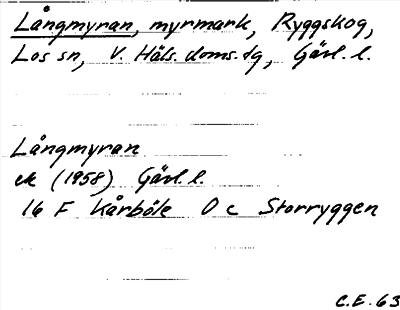 Långmyran, myrmark, Ryggskog,
Los sn, V. Häls. doms.tg, Gävl. l.
Långmyran
ek (1958) Gävl. l.
16 F Kårböle O c Storryggen
C.E. 63